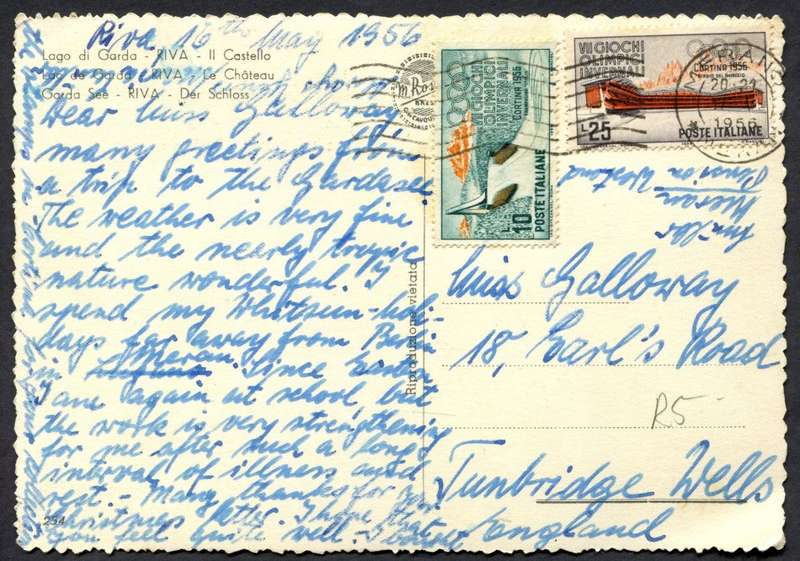 Riva 16th May 1956
Lago di Garda - RIVA - Il Castello
Lac de Garda - RIVA - Le Château
Garda See - RIVA - Der Schloss
Dear Miss Galloway
many greetings from
a trip to the Gardasee.
The weather is very fine
and the nearly tropic
nature wonderful. I
spend my Whitsun-holi-
days far away from Berlin
in Meran. Since Easter
I am again at school but
the work is very strengthening
for me after such a long
interval of illness and
rest. - Many thanks for your
Christmas letter. I hope that
you feel quite well.
254
Riproduzione vietata
VII GIOCHI
OLIMPICI
INVERNALI
CORTINA 1956
L. 10 POSTE ITALIANE
VII GIOCHI
OLIMPICI
INVERNALI
CORTINA 1956
L. 25 POSTE ITALIANE
20-21
1956
Meran
Pension
Miss Galloway
18, Earl's Road
R5
Tunbridge Wells
England